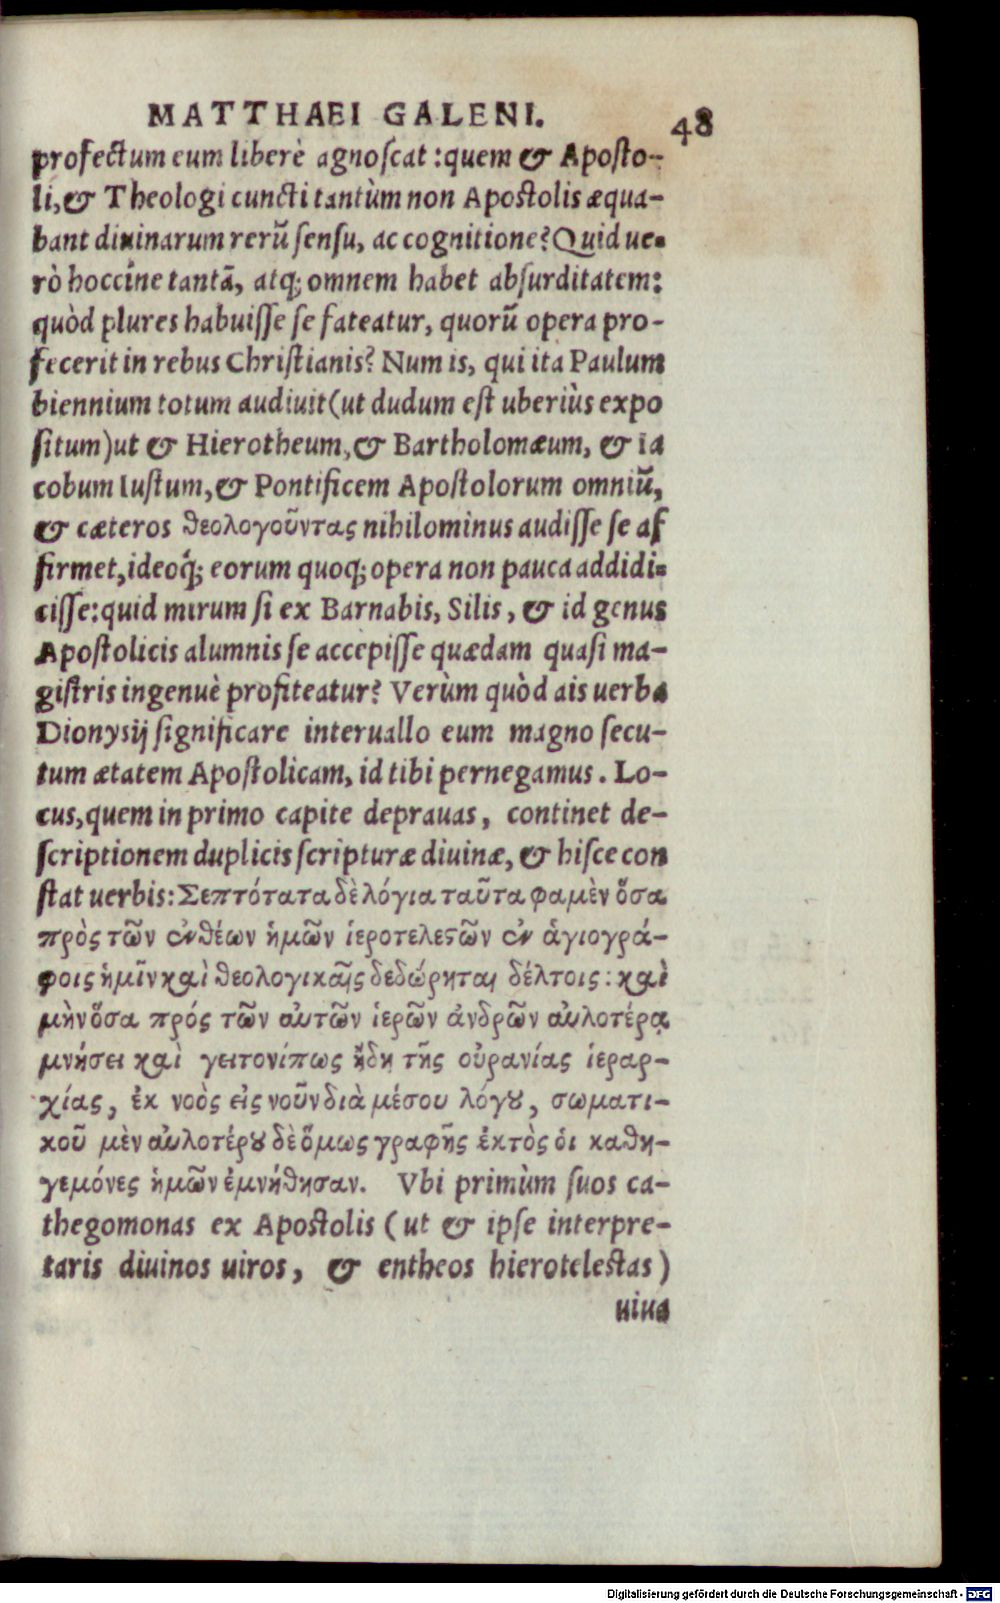 MATTHAEI GALENI. 48
profectum eum liberè agnoscat: quem & Aposto-
li, & Theologi cuncti tantùm non Apostolis æqua-
bant diuinarum rerū sensu, ac cognitione? Quid ue-
rò hoccíne tantā, atq; omnem habet absurditatem:
quòd plures habuisse se fateatur, quorū opera pro-
fecerit in rebus Christianis? Num is, qui ita Paulum
biennium totum audiuit (ut dudum est uberiùs expo
situm) ut & Hierotheum, & Bartholomæum, & Ia
cobum Iustum, & Pontificem Apostolorum omniū,
& cæteros θεολογοῦντας nihilominus audisse se af
firmet, ideoq́; eorum quoq; opera non pauca addidi-
cisse: quid mirum si ex Barnabis, Silis, & id genus
Apostolicis alumnis se accepisse quædam quasi ma-
gistris ingenuè profiteatur? Verùm quòd ais uerba
Dionysij significare interuallo eum magno secu-
tum ætatem Apostolicam, id tibi pernegamus. Lo-
cus, quem in primo capite deprauas, continet de-
scriptionem duplicis scripturæ diuinæ, & hisce con
stat uerbis: Σεπτότατα δὲ λόγια ταῦτα φαμὲν ὅσα
πρὸς τῶν ἐνθέων ἡμῶν ἱεροτελεστῶν ἐν ἁγιογρά-
φοις ἡμῖν καὶ θεολογικαῖς δεδώρηται δέλτοις: καὶ
μὴν ὅσα πρός τῶν αὐτῶν ἱερῶν ἀνδρῶν ἀυλοτέρᾳ
μνήσει καὶ γειτονίπως ἤδη τῆς οὐρανίας ἱεραρ-
χίας, ἐκ νοὸς εἰς νοῦν διὰ μέσου λόγου, σωματι-
κοῦ μὲν ἀυλοτέρου δὲ ὅμως γραφῆς ἐκτὸς ὁι καθη-
γεμόνες ἡμῶν ἐμνήθησαν. Vbi primùm suos ca-
thegomonas ex Apostolis (ut & ipse interpre-
taris diuinos uiros, & entheos hierotelestas)
uiua
Digitalisierung gefördert durch die Deutsche Forschungsgemeinschaft - DFG